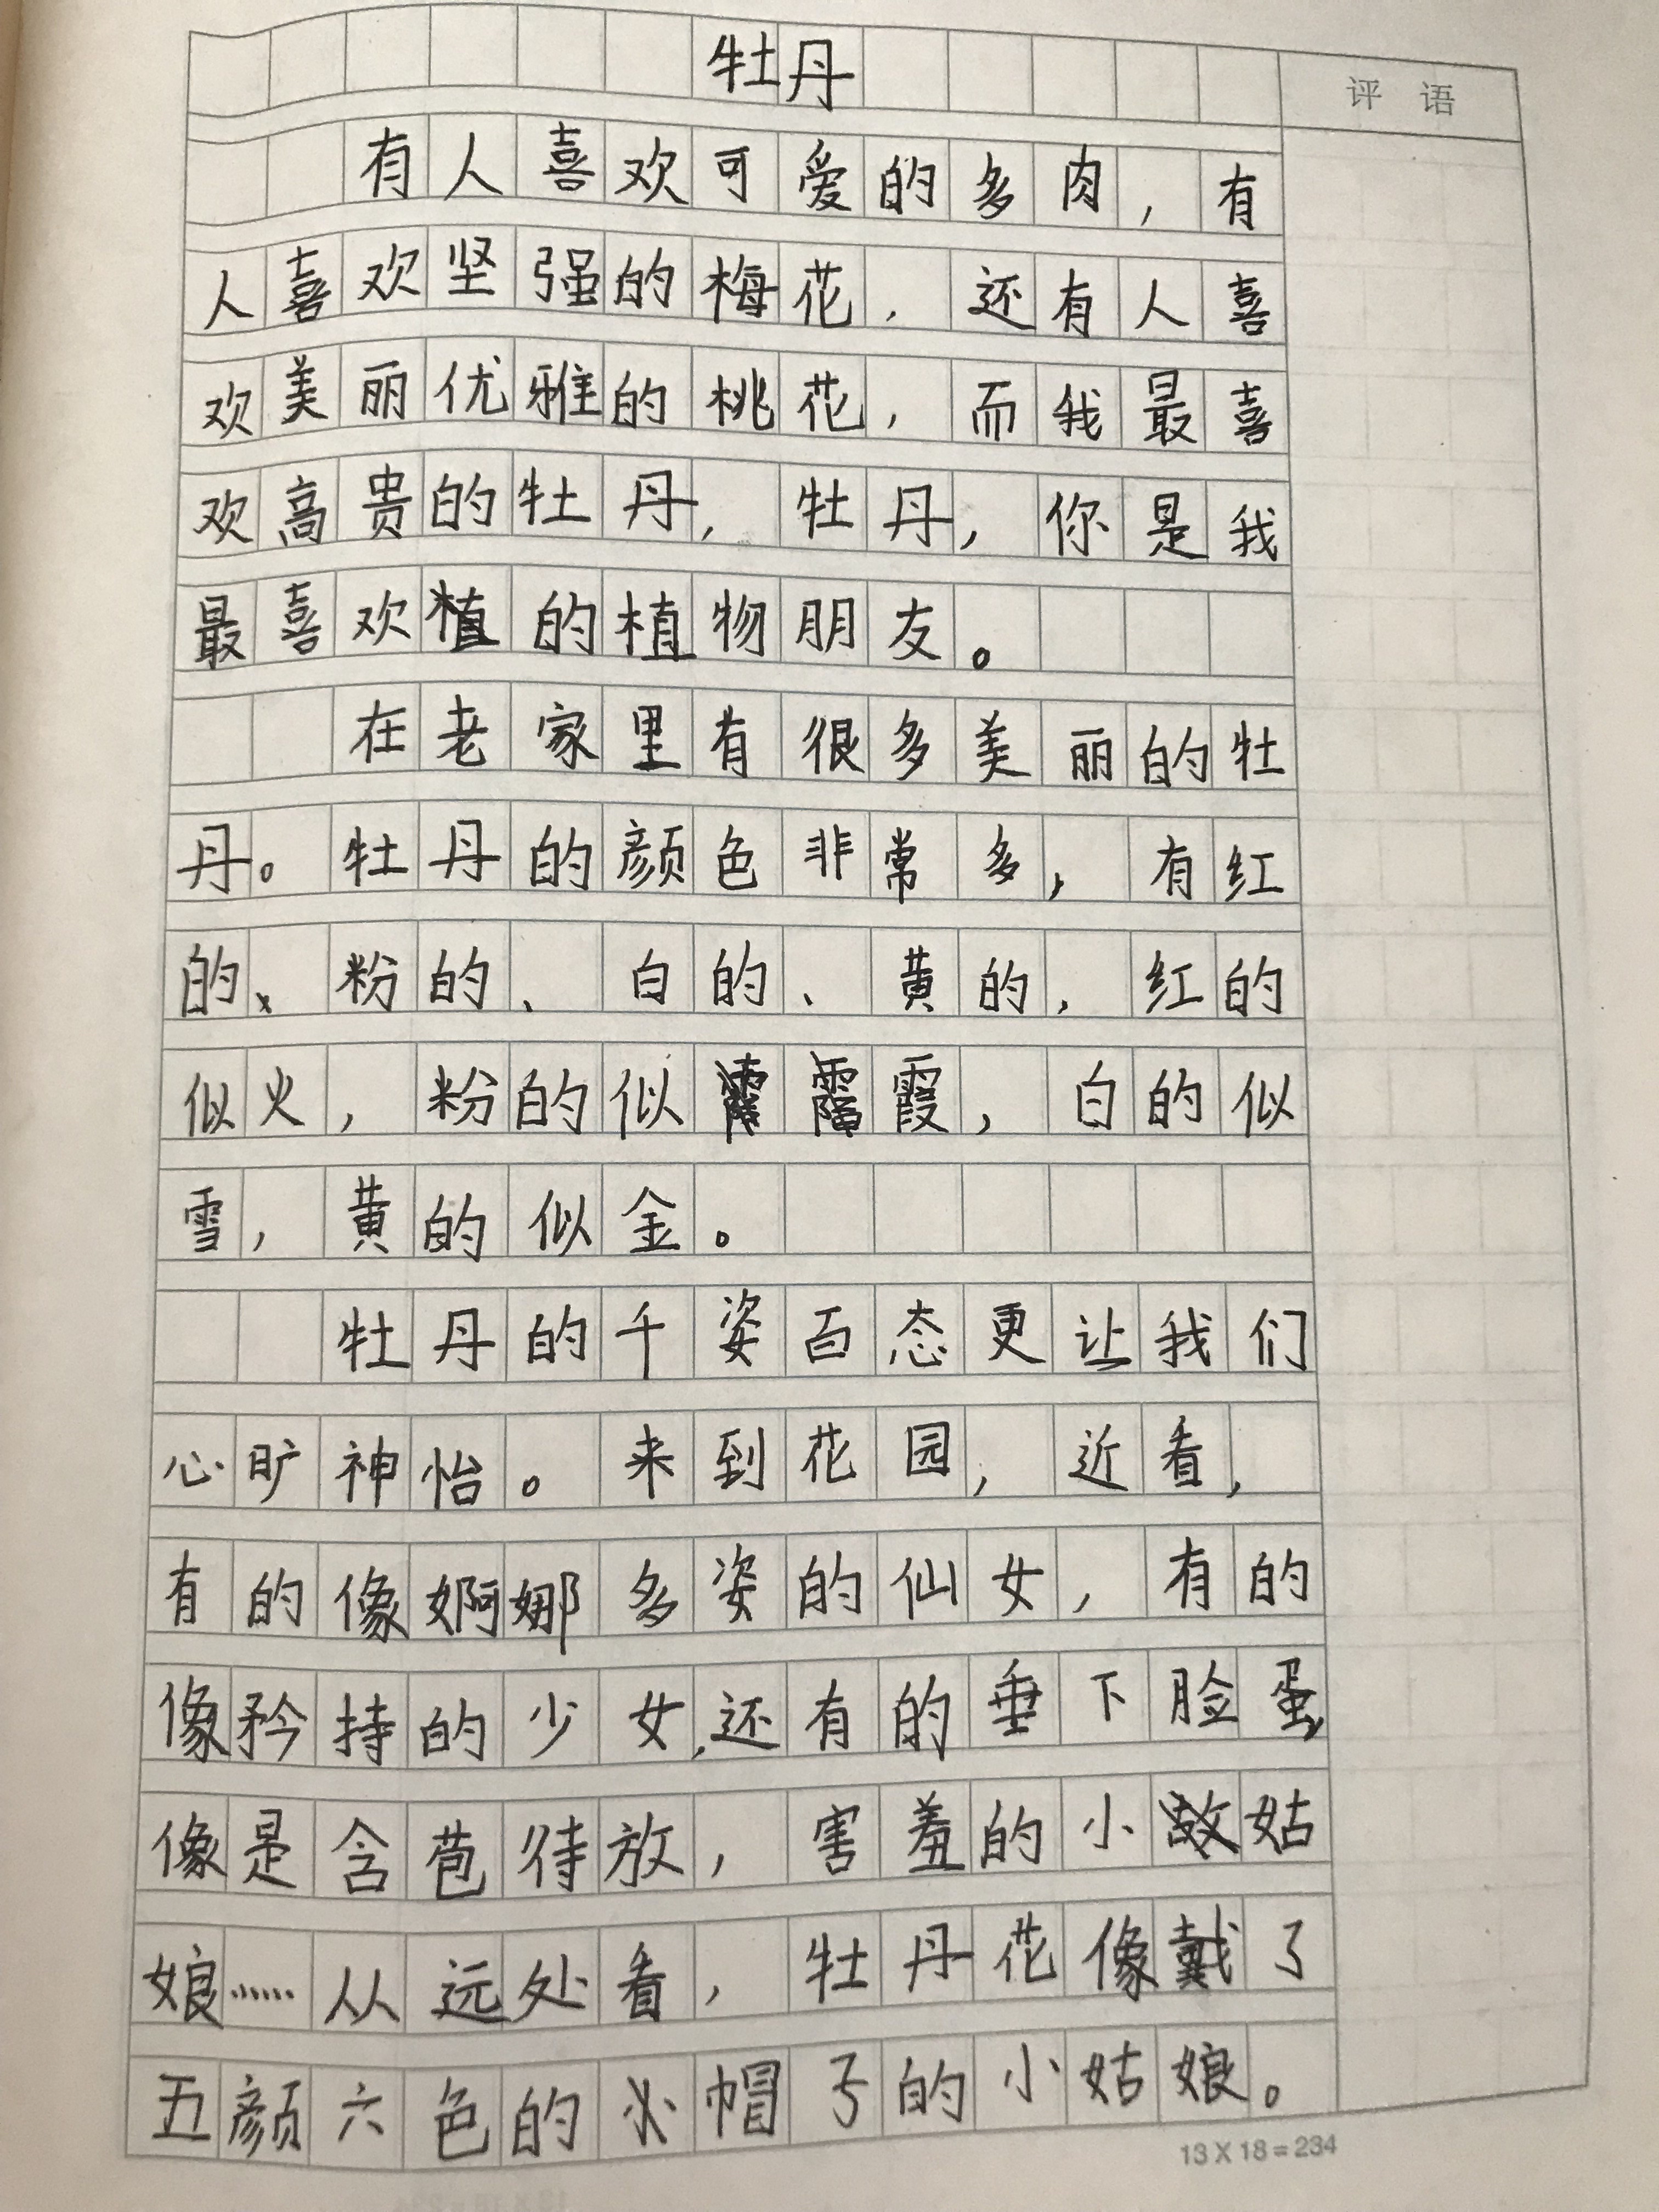 牡丹
评语
有人喜欢可爱的多肉，有
人喜欢坚强的梅花，还有人喜
欢美丽优雅的桃花，而我最喜
欢高贵的牡丹，牡丹，你是我
最喜欢的植物朋友。
在老家里有很多美丽的牡
丹。牡丹的颜色非常多，有红
的、粉的、白的、黄的，红的
似火，粉的似霞，白的似
雪，黄的似金。
牡丹的千姿百态更让我们
心旷神怡。来到花园，近看，
有的像婀娜多姿的仙女，有的
像矜持的少女，还有的垂下脸蛋，
像是含苞待放，害羞的小姑
娘……从远处看，牡丹花像戴了
五颜六色的帽子的小姑娘。
13X18=234